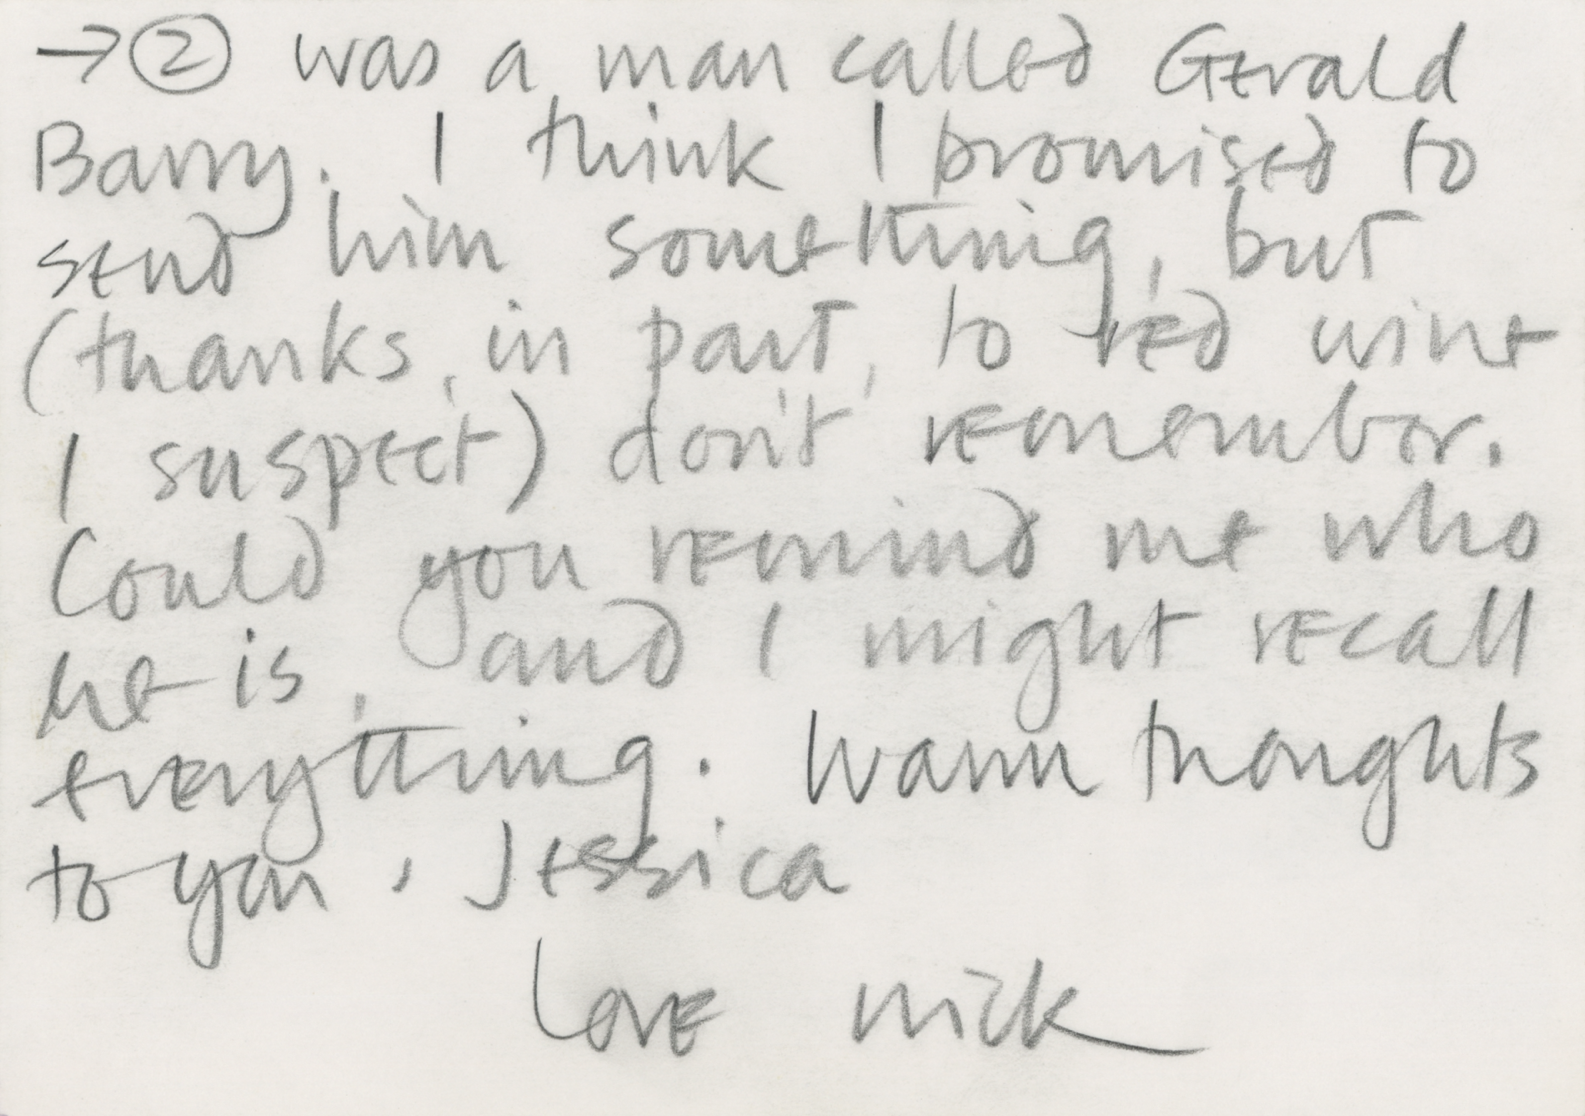 → ② was a man called Gerald
Barry. I think I promised to
send him something, but
(thanks, in part, to red wine
I suspect) don't remember.
Could you remind me who
he is, and I might recall
everything. Warm thoughts
to you, Jessica
Love Nick